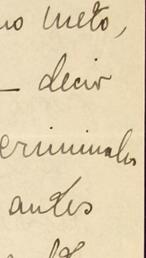 no meto,
— decir
criminales
antes